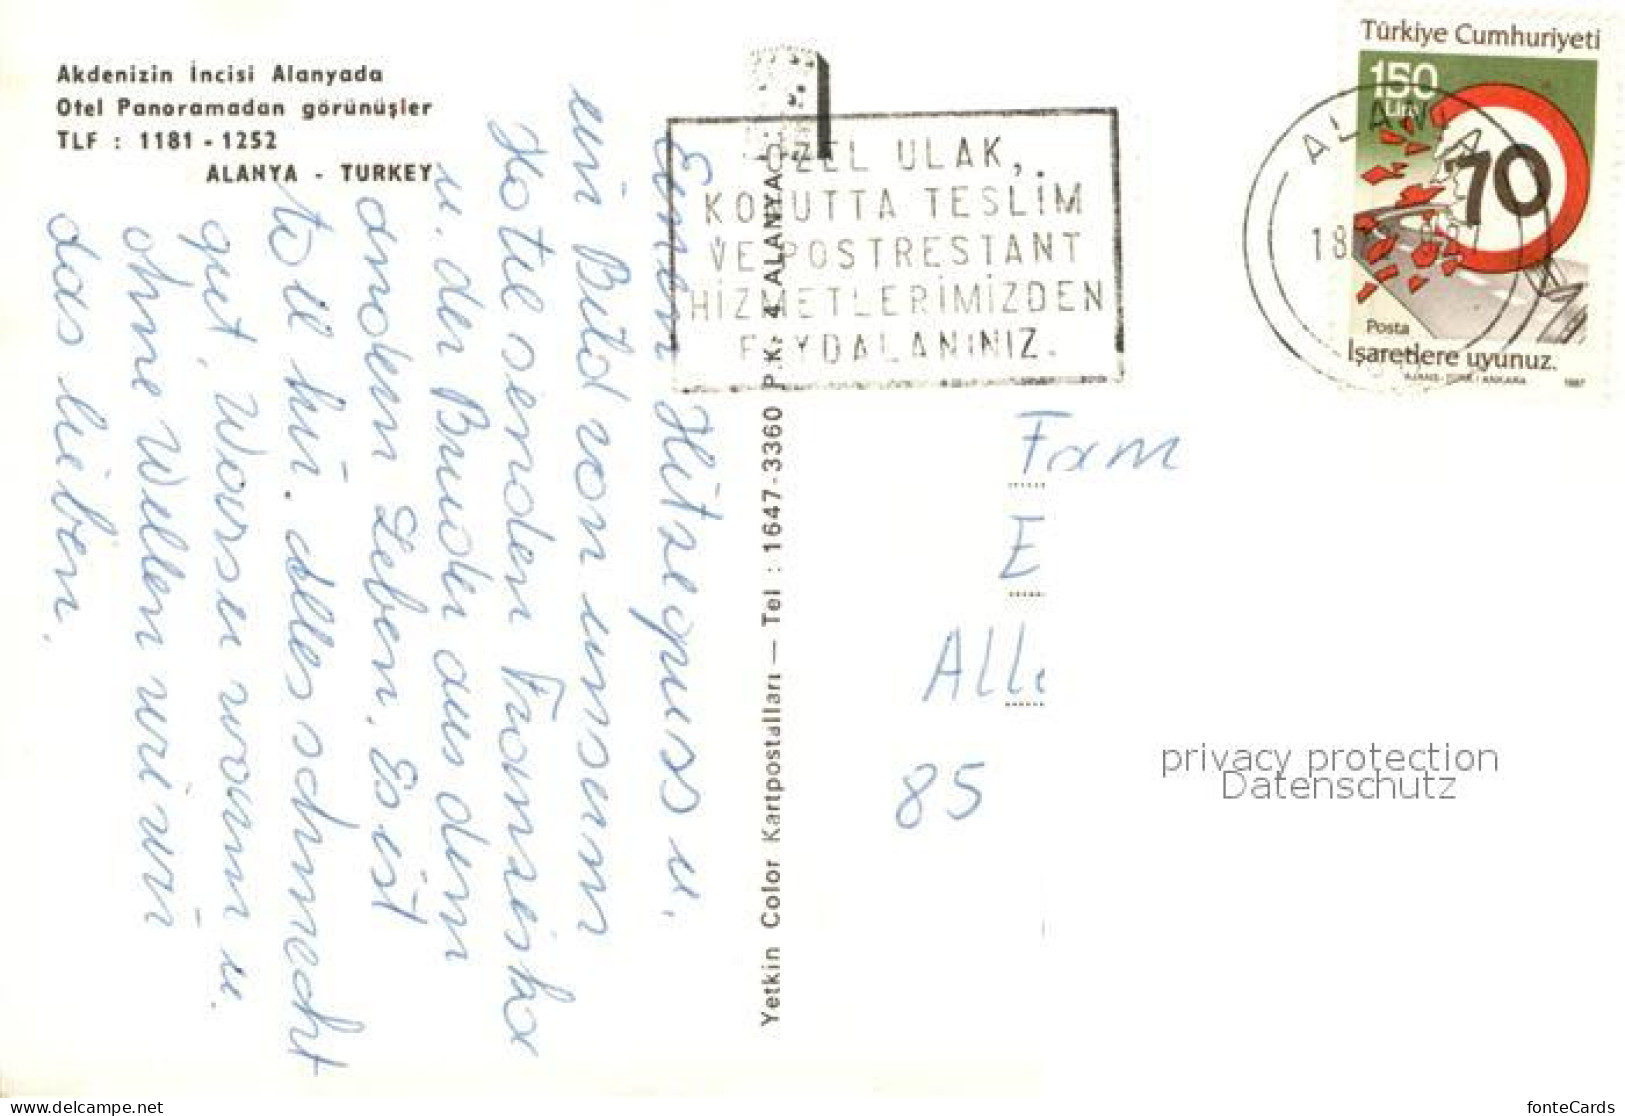 Akdenizin İncisi Alanyada
Otel Panoramadan görünüşler
TLF : 1181 - 1252
ALANYA - TURKEY
Einen Hitzegruss u.
ein Bild von unserem
Hotel senden Franziska
u. der Bruder aus dem
anderen Leben. Es ist
toll hier. Alles schmeckt
gut, Wasser warm u.
ohne Wellen wie wir
das lieben.
Yetkin Color Kartpostalları — Tel : 1647-3360 P.K: 4 ALANYA
ÖZEL ULAK,
KONUTTA TESLİM
VE POSTRESTANT
HİZMETLERİMİZDEN
FAYDALANINIZ.
Türkiye Cumhuriyeti
150
Lira
70
ALANYA
18
Posta
İşaretlere uyunuz.
AJANS-TÜRK / ANKARA 1987
Fam
E
Alle
85
privacy protection
Datenschutz
delcampe.net
fonteCards